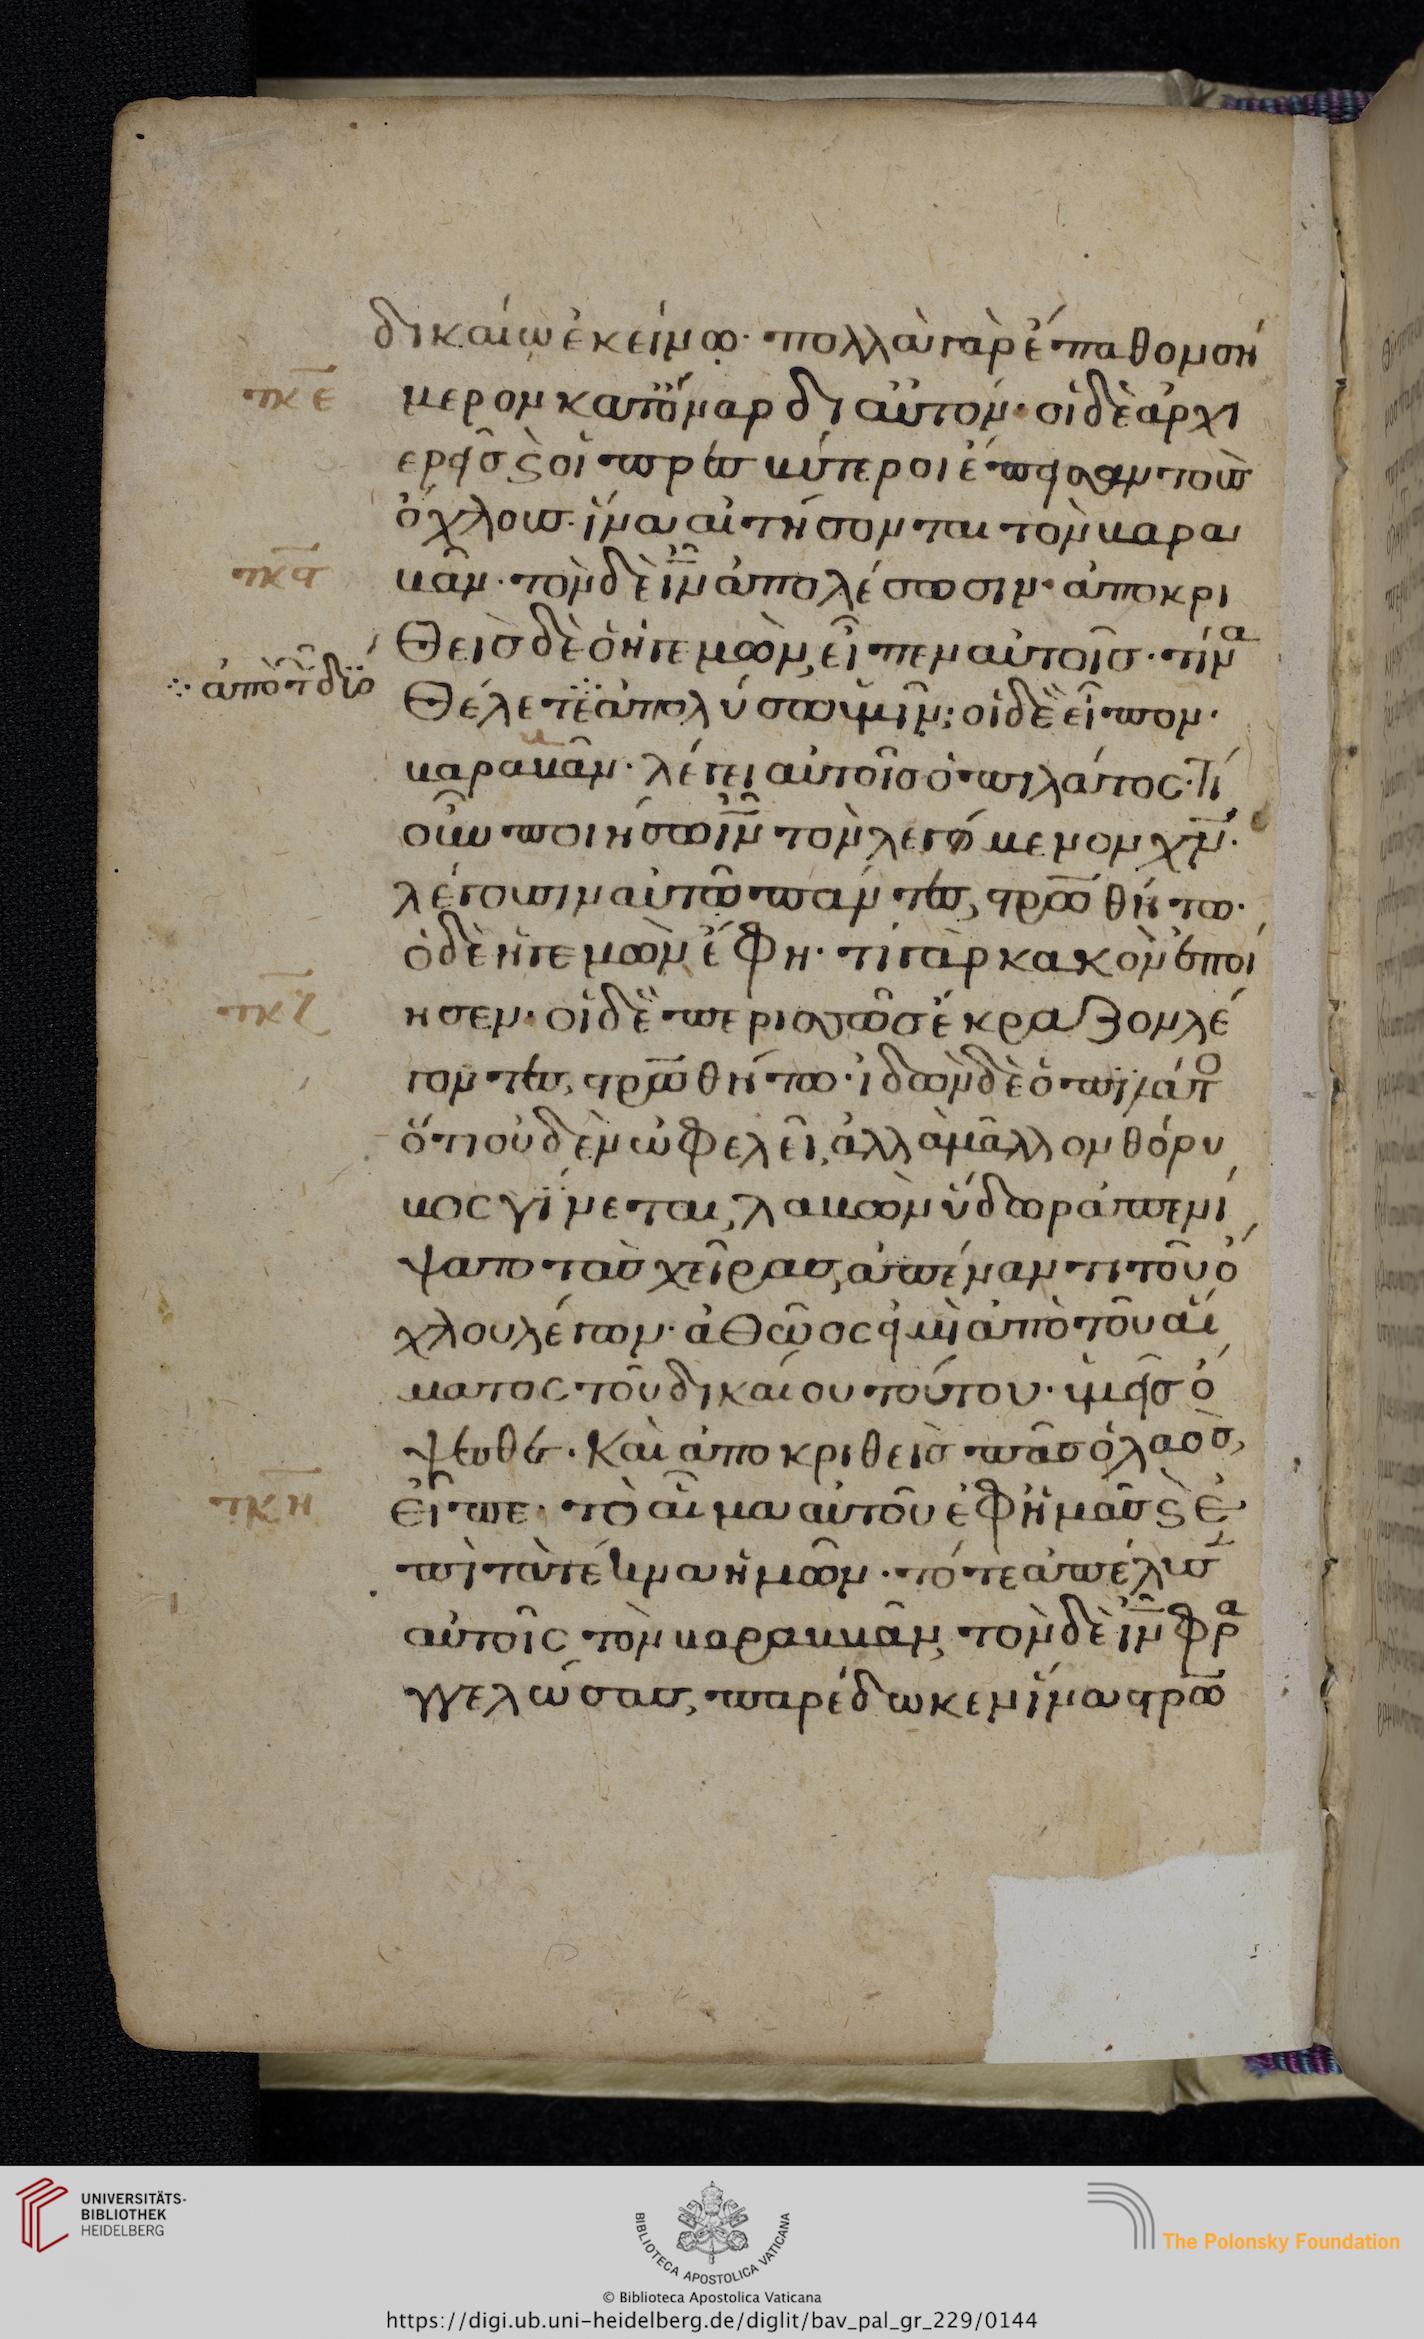 δικαίω ἐκείνω· πολλὰ γὰρ ἔπαθον σή
τκε
μερον κατόναρ δι αὐτόν· οἱ δὲ ἀρχι
ερεῖς ϗ οἱ πρεσβύτεροι ἔπεισαν τοὺς
ὄχλους· ἵνα αἰτήσονται τὸν βαρα
τκϛ
βᾶν· τὸν δὲ ιν ἀπολέσωσιν· ἀποκρι
θεὶς δὲ ὁ ἡγεμὼν, εἶπεν αὐτοῖς· τίνα
ἀπὸ τ δύο
θέλετε ἀπολύσω ὑμῖν; οἱ δὲ εἶπον·
βαραβᾶν· λέγει αὐτοῖς ὁ πιλάτος· τί
οὖν ποιήσω ιν τὸν λεγόμενον χν·
λέγουσιν αὐτῶ πάντες, στρωθήτω·
ὁ δὲ ἡγεμὼν ἔφη· τί γὰρ κακὸν ἐποί
τκζ
ησεν· οἱ δὲ περισσῶς ἔκραζον λέ
γοντες, στρωθήτω· ἰδὼν δὲ ὁ πιλάτο
ὅτι οὐδὲν ὠφελεῖ, ἀλλὰ μᾶλλον θόρυ
βος γίνεται, λαβὼν ὕδωρ ἀπενί
ψατο τὰς χεῖρας, ἀπέναντι τοῦ ὄ
χλου λέγων· ἀθῶος εἰμὶ ἀπὸ τοῦ αἵ
ματος τοῦ δικαίου τούτου· ὑμεῖς ὄ
ψεσθε· Καὶ ἀποκριθεὶς πᾶς ὁ λαὸς,
τκη
εἶπε· τὸ αἷμα αὐτοῦ ἐφ ἡμᾶς ϗ ἐ
πὶ τὰ τέκνα ἡμῶν· τότε ἀπέλυσ
αὐτοῖς τὸν βαραββᾶν, τὸν δὲ ιν φρα
γγελώσας, παρέδωκεν ἵνα στρω
UNIVERSITÄTS-
BIBLIOTHEK
HEIDELBERG
BIBLIOTECA APOSTOLICA VATICANA
The Polonsky Foundation
© Biblioteca Apostolica Vaticana
https://digi.ub.uni-heidelberg.de/diglit/bav_pal_gr_229/0144